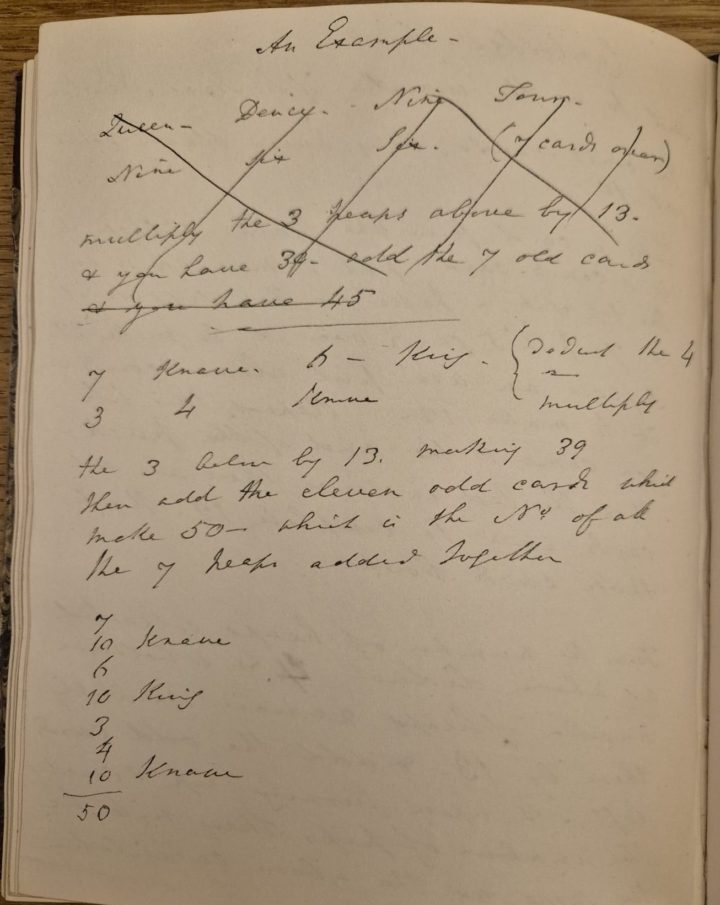 An Example -
Queen - Deucy. - Nine Four -
Nine Six Six. (7 cards over)
multiply the 3 heaps above by 13.
& you have 39 - add the 7 old cards
& you have 45
7 Knave. 6 - King. { deduct the 4
3 4 Knave multiply
the 3 below by 13. making 39
then add the eleven odd cards which
make 50 - which is the No. of all
the 7 heaps added together
7
10 Knave
6
10 King
3
4
10 Knave
50